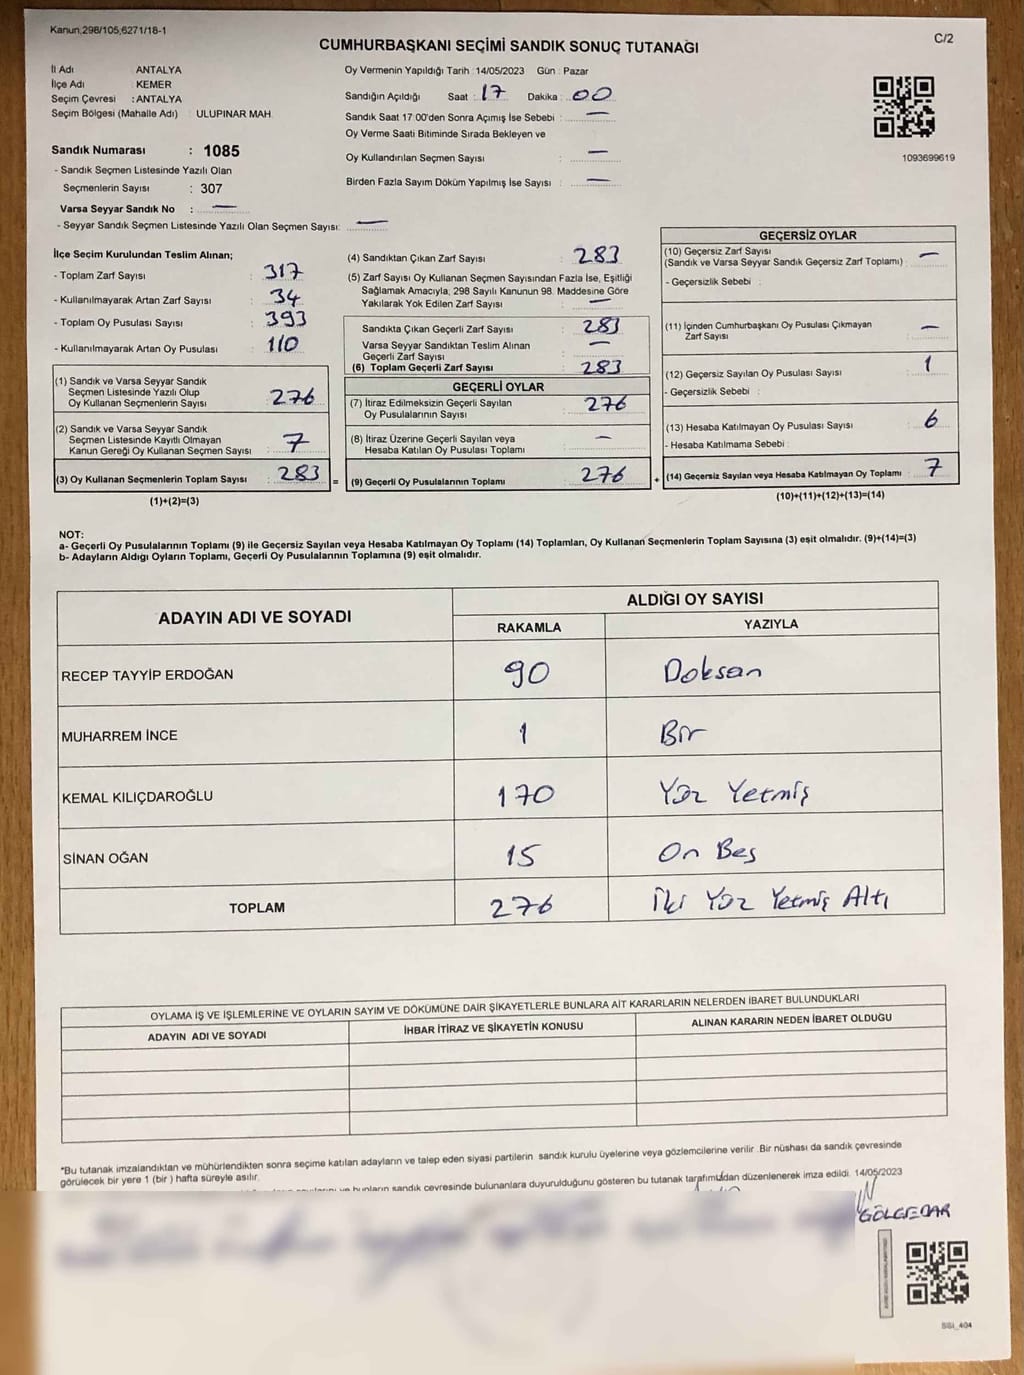 Kanun;298/105;6271/18-1
C/2
CUMHURBAŞKANI SEÇİMİ SANDIK SONUÇ TUTANAĞI
İl Adı : ANTALYA
İlçe Adı : KEMER
Seçim Çevresi : ANTALYA
Seçim Bölgesi (Mahalle Adı) : ULUPINAR MAH.
Sandık Numarası : 1085
- Sandık Seçmen Listesinde Yazılı Olan
Seçmenlerin Sayısı : 307
Varsa Seyyar Sandık No : —
- Seyyar Sandık Seçmen Listesinde Yazılı Olan Seçmen Sayısı: —
Oy Vermenin Yapıldığı Tarih : 14/05/2023 Gün : Pazar
Sandığın Açıldığı Saat : 17 Dakika : 00
Sandık Saat 17:00'den Sonra Açımış İse Sebebi : —
Oy Verme Saati Bitiminde Sırada Bekleyen ve
Oy Kullandırılan Seçmen Sayısı : —
Birden Fazla Sayım Döküm Yapılmış İse Sayısı : —
1093699619
İlçe Seçim Kurulundan Teslim Alınan;
- Toplam Zarf Sayısı : 317
- Kullanılmayarak Artan Zarf Sayısı : 34
- Toplam Oy Pusulası Sayısı : 393
- Kullanılmayarak Artan Oy Pusulası : 110
(1) Sandık ve Varsa Seyyar Sandık
Seçmen Listesinde Yazılı Olup
Oy Kullanan Seçmenlerin Sayısı : 276
(2) Sandık ve Varsa Seyyar Sandık
Seçmen Listesinde Kayıtlı Olmayan
Kanun Gereği Oy Kullanan Seçmen Sayısı : 7
(3) Oy Kullanan Seçmenlerin Toplam Sayısı : 283
(1)+(2)=(3)
(4) Sandıktan Çıkan Zarf Sayısı : 283
(5) Zarf Sayısı Oy Kullanan Seçmen Sayısından Fazla İse, Eşitliği
Sağlamak Amacıyla, 298 Sayılı Kanunun 98. Maddesine Göre
Yakılarak Yok Edilen Zarf Sayısı : —
Sandıkta Çıkan Geçerli Zarf Sayısı : 283
Varsa Seyyar Sandıktan Teslim Alınan
Geçerli Zarf Sayısı : —
(6) Toplam Geçerli Zarf Sayısı : 283
GEÇERLİ OYLAR
(7) İtiraz Edilmeksizin Geçerli Sayılan
Oy Pusulalarının Sayısı : 276
(8) İtiraz Üzerine Geçerli Sayılan veya
Hesaba Katılan Oy Pusulası Toplamı : —
= (9) Geçerli Oy Pusulalarının Toplamı : 276
GEÇERSİZ OYLAR
(10) Geçersiz Zarf Sayısı
(Sandık ve Varsa Seyyar Sandık Geçersiz Zarf Toplamı) : —
- Geçersizlik Sebebi :
(11) İçinden Cumhurbaşkanı Oy Pusulası Çıkmayan
Zarf Sayısı : —
(12) Geçersiz Sayılan Oy Pusulası Sayısı : 1
- Geçersizlik Sebebi :
(13) Hesaba Katılmayan Oy Pusulası Sayısı : 6
- Hesaba Katılmama Sebebi :
+ (14) Geçersiz Sayılan veya Hesaba Katılmayan Oy Toplamı : 7
(10)+(11)+(12)+(13)=(14)
NOT:
a- Geçerli Oy Pusulalarının Toplamı (9) ile Geçersiz Sayılan veya Hesaba Katılmayan Oy Toplamı (14) Toplamları, Oy Kullanan Seçmenlerin Toplam Sayısına (3) eşit olmalıdır. (9)+(14)=(3)
b- Adayların Aldığı Oyların Toplamı, Geçerli Oy Pusulalarının Toplamına (9) eşit olmalıdır.
ADAYIN ADI VE SOYADI
ALDIĞI OY SAYISI
RAKAMLA YAZIYLA
RECEP TAYYİP ERDOĞAN 90 Doksan
MUHARREM İNCE 1 Bir
KEMAL KILIÇDAROĞLU 170 Yüz Yetmiş
SİNAN OĞAN 15 On Beş
TOPLAM 276 İki Yüz Yetmiş Altı
OYLAMA İŞ VE İŞLEMLERİNE VE OYLARIN SAYIM VE DÖKÜMÜNE DAİR ŞİKAYETLERLE BUNLARA AİT KARARLARIN NELERDEN İBARET BULUNDUKLARI
ADAYIN ADI VE SOYADI İHBAR İTİRAZ VE ŞİKAYETİN KONUSU ALINAN KARARIN NEDEN İBARET OLDUĞU
*Bu tutanak imzalandıktan ve mühürlendikten sonra seçime katılan adayların ve talep eden siyasi partilerin sandık kurulu üyelerine veya gözlemcilerine verilir. Bir nüshası da sandık çevresinde
görülecek bir yere 1 (bir) hafta süreyle asılır.
ve bunların sandık çevresinde bulunanlara duyurulduğunu gösteren bu tutanak tarafımızdan düzenlenerek imza edildi. 14/05/2023
GÖLGEDAR
SSI_404